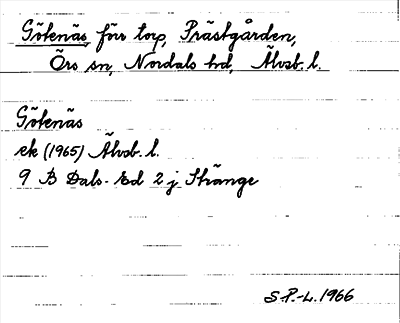 Götenäs förr torp, Prästgården,
Örs sn, Nordals hd, Älvsb. l.
Götenäs
ek (1965) Älvsb. l.
9 B Dals-Ed 2 j Stränge
S.P.-L. 1966